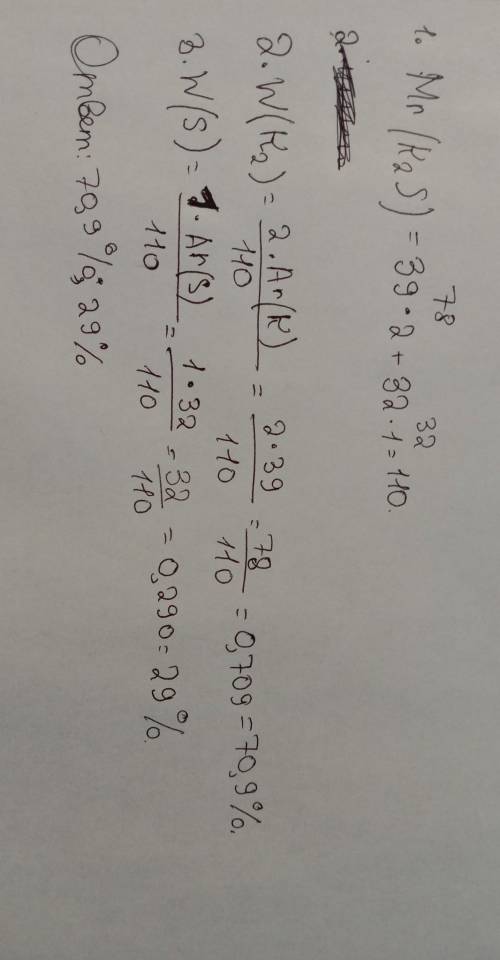 1. Mr(K₂S) = 39·2 + 32·1 = 110.
78 32
2.
2. W(K₂) = 2·Ar(K)/110 = 2·39/110 = 78/110 = 0,709 = 70,9%.
3. W(S) = 1·Ar(S)/110 = 1·32/110 = 32/110 = 0,290 = 29%.
Ответ: 70,9%; 29%